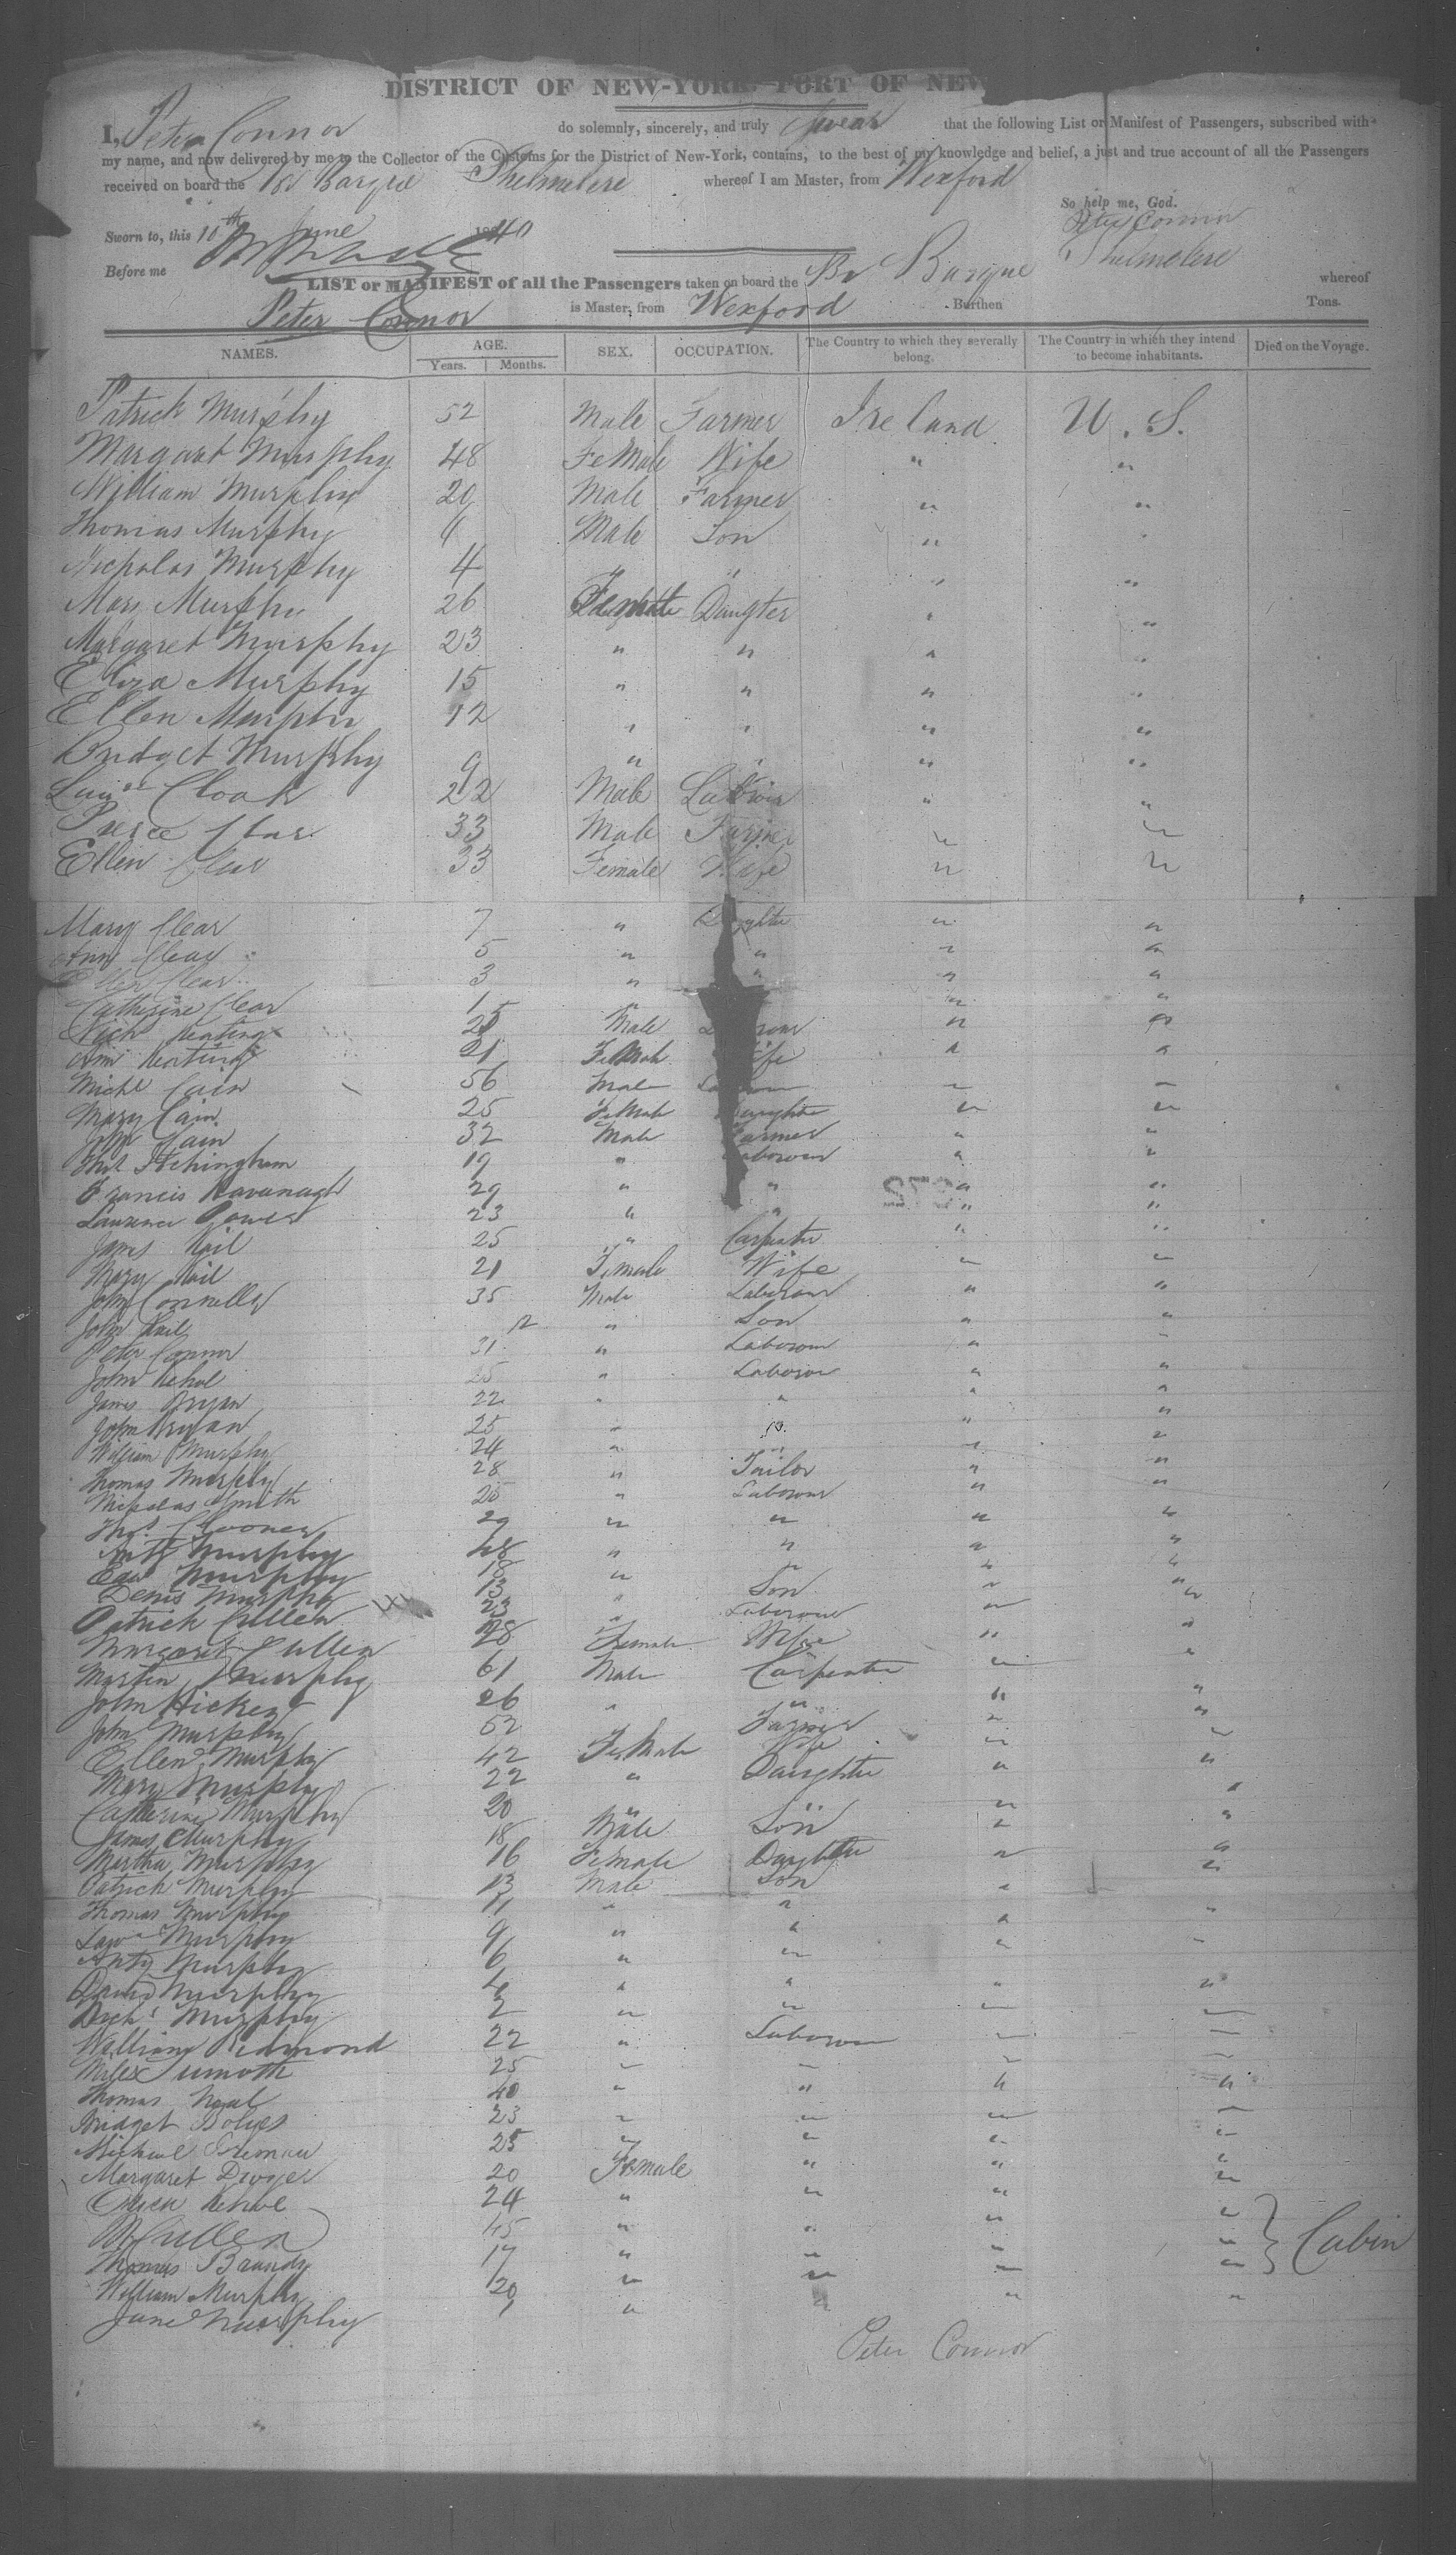 DISTRICT OF NEW-YORK PORT OF NEW
I, Peter Connor do solemnly, sincerely, and truly Swear that the following List or Manifest of Passengers, subscribed with
my name, and now delivered by me to the Collector of the Customs for the District of New-York, contains, to the best of my knowledge and belief, a just and true account of all the Passengers
received on board the Br Barque Shelmalere whereof I am Master, from Wexford
So help me, God.
Peter Connor
Sworn to, this 10th June 1840
Before me
LIST or MANIFEST of all the Passengers taken on board the Br Barque Shelmalere whereof
Peter Connor is Master, from Wexford Burthen Tons.
NAMES. AGE. Years. Months. SEX. OCCUPATION. The Country to which they severally belong. The Country in which they intend to become inhabitants. Died on the Voyage.
Patrick Murphy 52 Male Farmer Ireland U.S.
Margaret Murphy 48 FeMale Wife " "
William Murphy 20 Male Farmer " "
Thomas Murphy 6 Male Son " "
Nicholas Murphy 4 " " " "
Mary Murphy 26 Female Daugter " "
Margaret Murphy 23 " " " "
Eliza Murphy 15 " " " "
Ellen Murphy 12 " " " "
Bridget Murphy 9 " " " "
Cloak 22 Male Labour " "
Pierce Clear 33 Male Farmer " "
Ellen Clear 33 Female Wife " "
Mary Clear 7 " Daughter " "
Ann Clear 5 " " " "
Ellen Clear 3 " " " "
Catherine Clear 1 " " "
Nich Keating 25 Male " "
Ann Keating 21 FeMale Wife " "
Michl Cain 56 Male " "
Mary Cain 25 FeMale Daughter " "
John Cain 32 Male Farmer " "
Itchingham 19 " Labourer " "
Francis Kavanagh 29 " " " "
Laurence Power 23 " " " "
James Kail 25 " Carpenter " "
Mary Kail 21 Female Wife " "
John Connelly 35 Male Labourer " "
John Kail 12 " Son " "
Peter Connor 31 " Labourer " "
John Kehoe 25 " Labourer " "
James Bryan 22 " " " "
John Bryan 25 " " " "
William Murphy 24 " " " "
Thomas Murphy 28 " Tailor " "
Nicholas Smith 25 " Labourer " "
Thos Clooney 29 " " " "
Anty Murphy 48 " " " "
Edw Murphy 18 " " " "
Denis Murphy 13 " Son " "
Patrick Cullen 23 " Labourer " "
Margaret Cullen 28 Female Wife " "
Martin Murphy 61 Male Carpenter " "
John Hickey 26 " " " "
John Murphy 52 Farmer " "
Ellen Murphy 42 FeMale Wife " "
Mary Murphy 22 " Daughter " "
Catherine Murphy 20 " " " "
James Murphy 18 Male Son " "
Martha Murphy 16 Female Daughter " "
Patrick Murphy 13 Male Son " "
Thomas Murphy 11 " " " "
Law Murphy 9 " " " "
Anty Murphy 6 " " " "
David Murphy 4 " " " "
Murphy 2 " " " "
William Redmond 22 " Labourer " "
25 " " " "
Thomas Neal 40 " " " "
Bridget 23 " " " "
Michael 25 " " " "
Margaret Dwyer 20 Female " " "
Kehoe 24 " " " "
Cullen 45 " " " "
Thomas 17 " " " " Cabin
William Murphy 20 " " " "
Jane Murphy 1 " " " "
Peter Connor